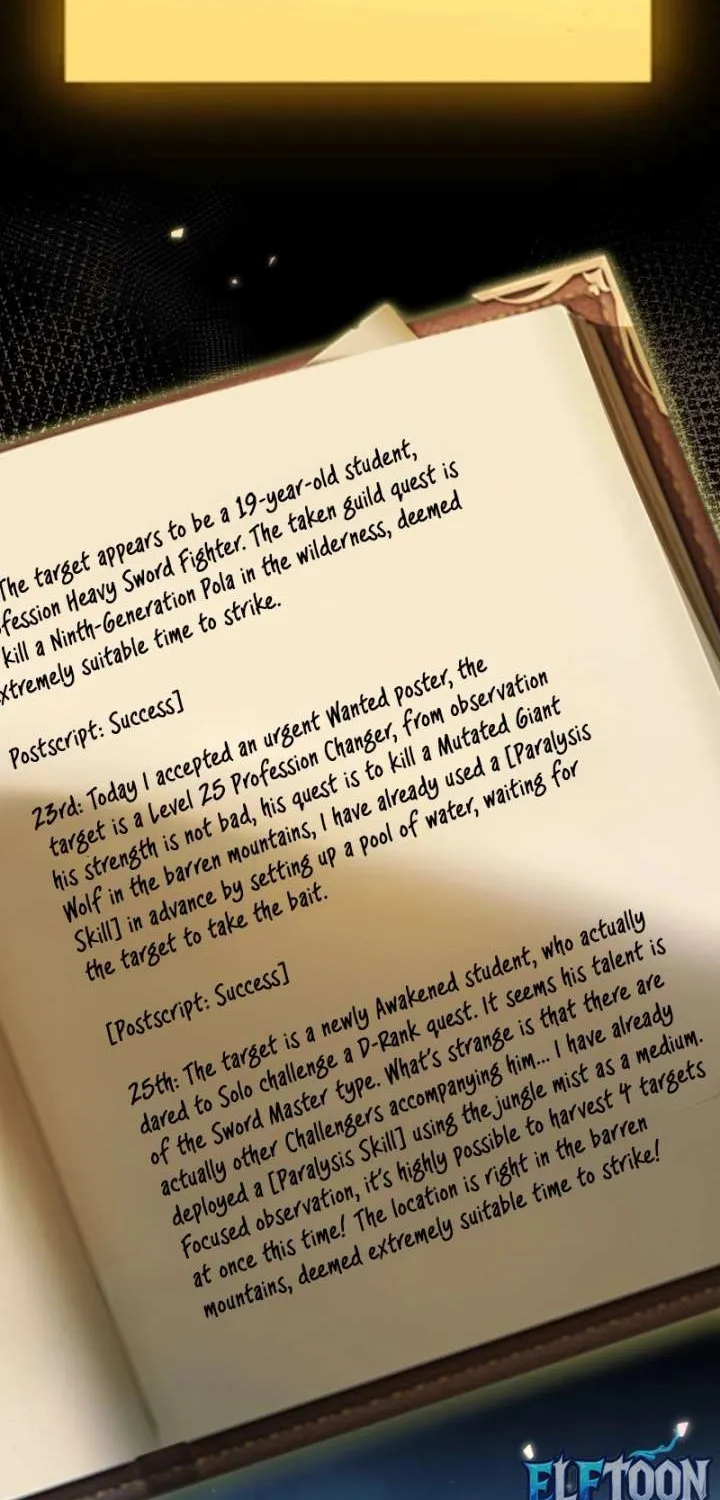 The target appears to be a 19-year-old student,
fession Heavy Sword Fighter. The taken guild quest is
kill a Ninth-Generation Pola in the wilderness, deemed
xtremely suitable time to strike.
Postscript: Success]
23rd: Today I accepted an urgent Wanted poster, the
target is a Level 25 Profession Changer, from observation
his strength is not bad, his quest is to kill a Mutated Giant
Wolf in the barren mountains, I have already used a [Paralysis
Skill] in advance by setting up a pool of water, waiting for
the target to take the bait.
[Postscript: Success]
25th: The target is a newly Awakened student, who actually
dared to Solo challenge a D-Rank quest. It seems his talent is
of the Sword Master type. What's strange is that there are
actually other Challengers accompanying him... I have already
deployed a [Paralysis Skill] using the jungle mist as a medium.
Focused observation, it's highly possible to harvest 4 targets
at once this time! The location is right in the barren
mountains, deemed extremely suitable time to strike!
ELFTOON